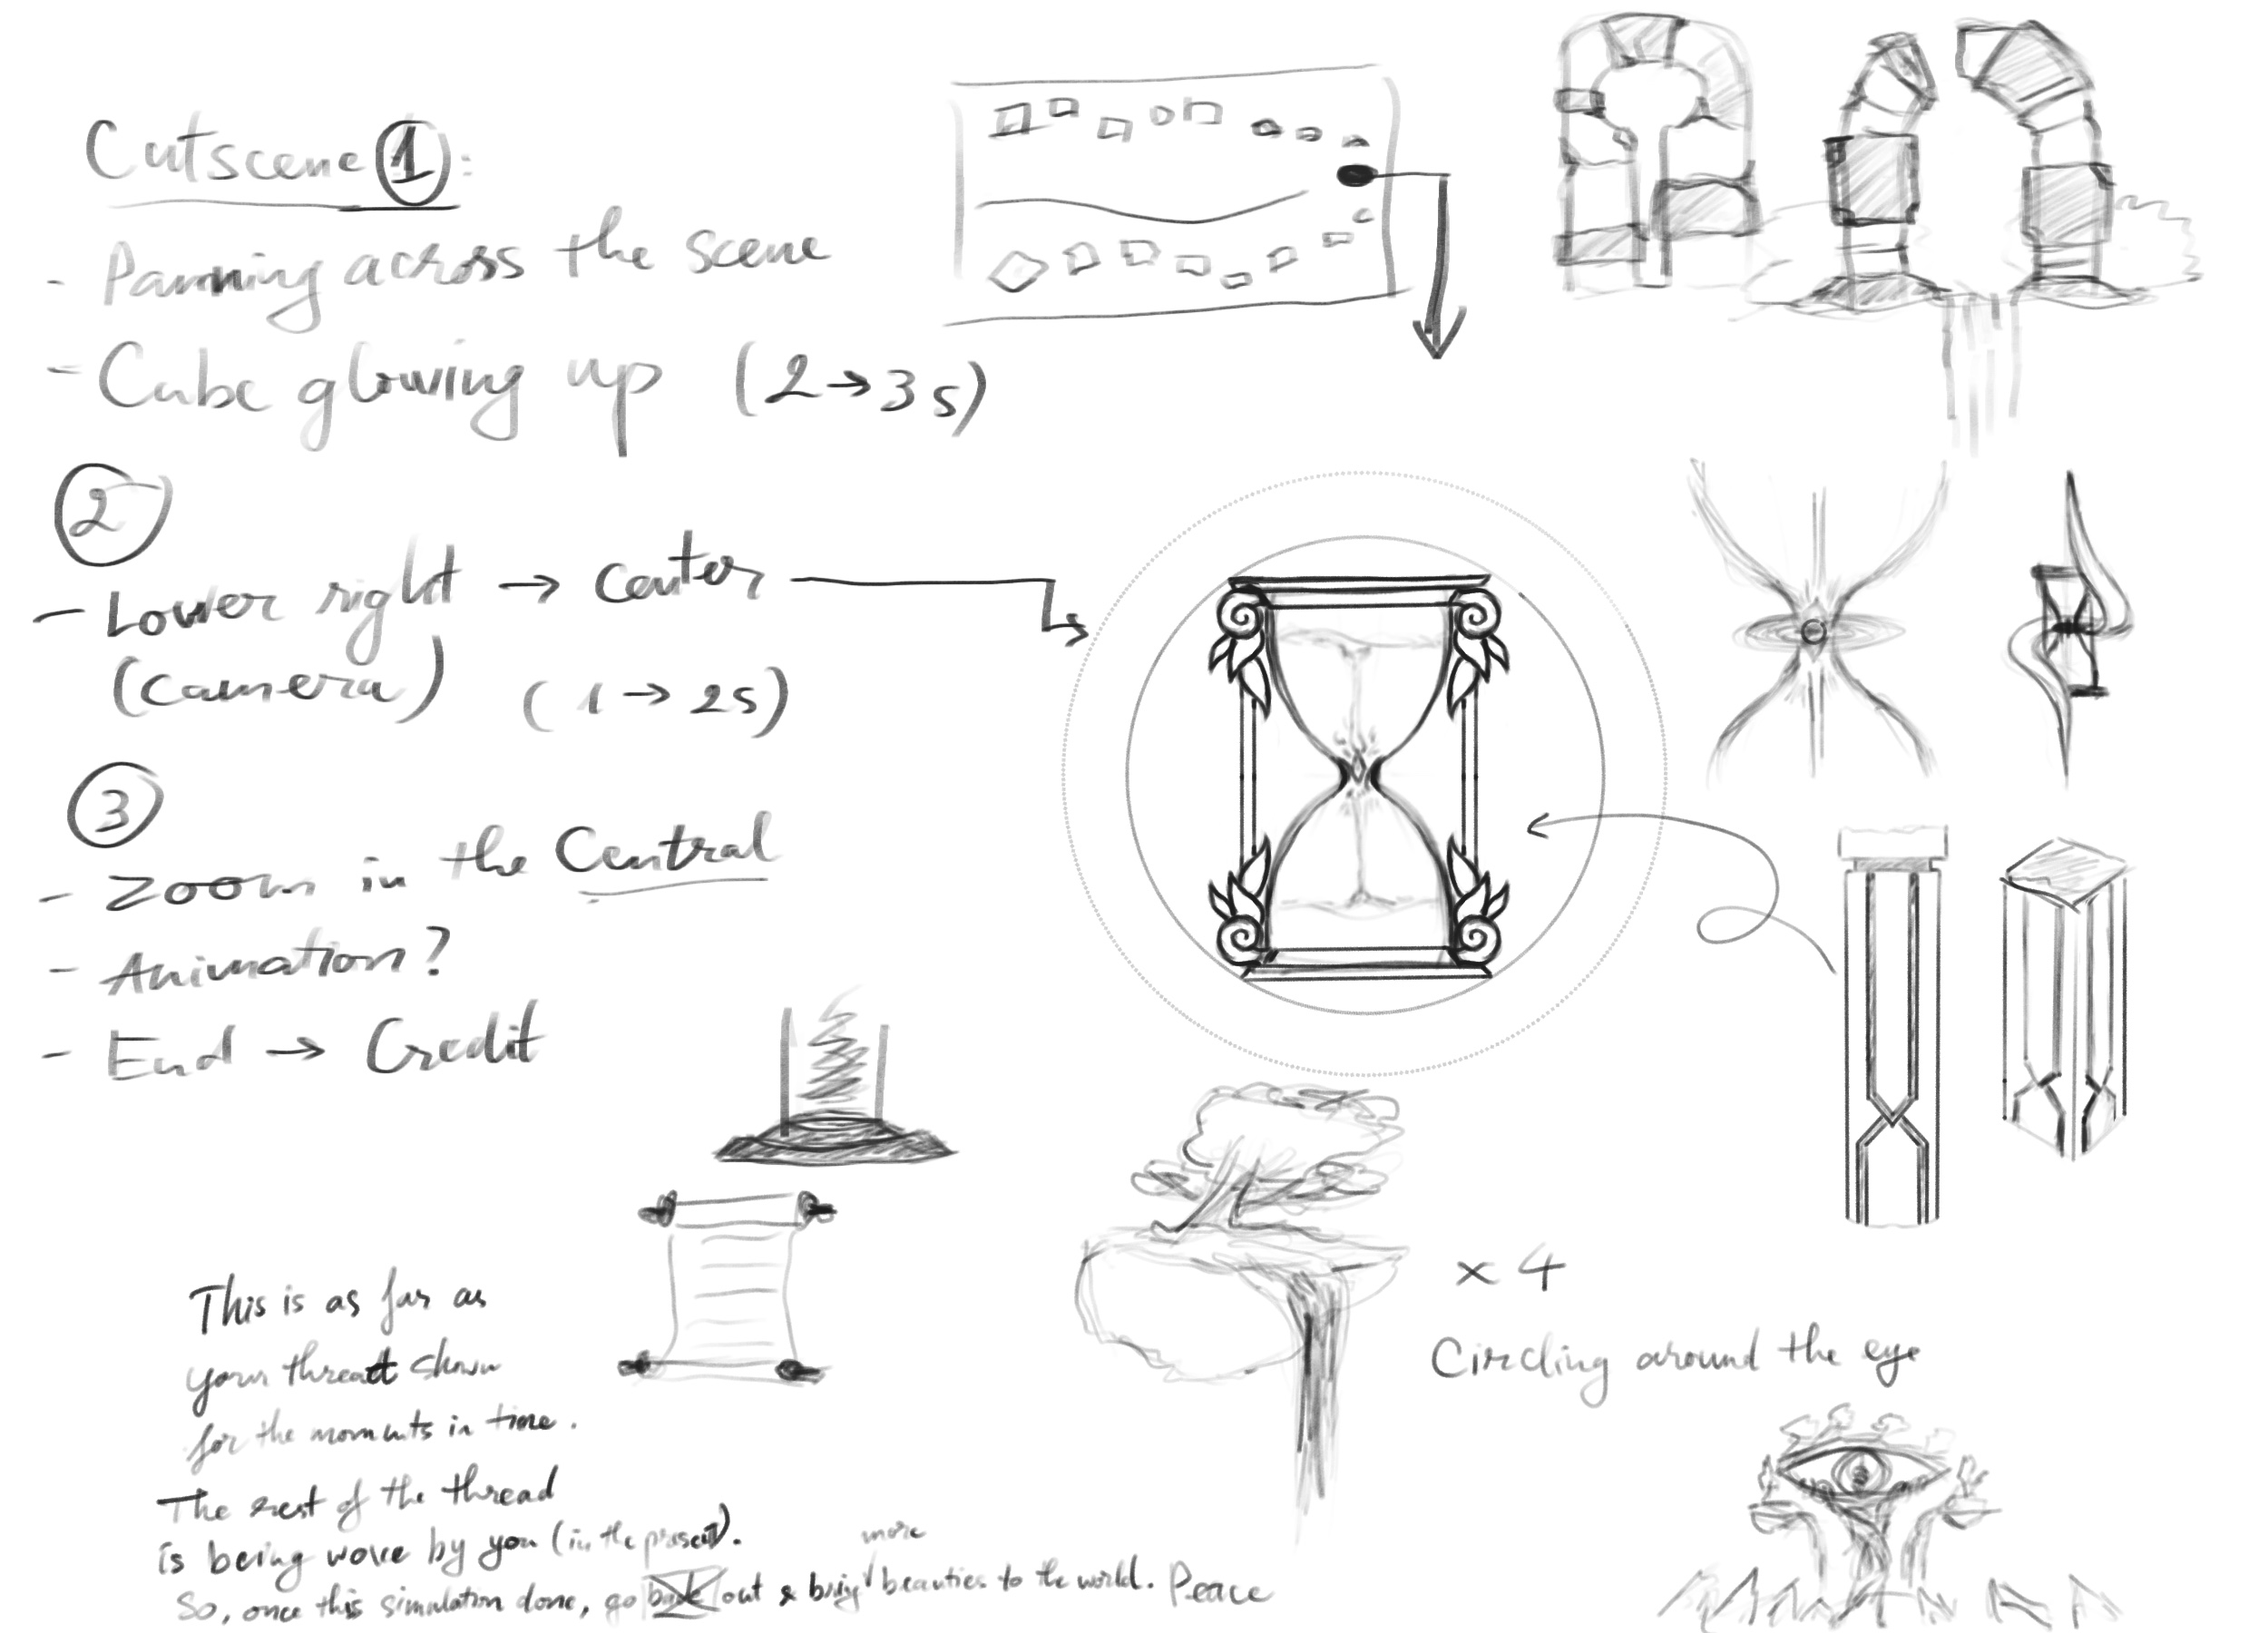 Cutscene 1:
- Panning across the scene
- Cube glowing up (2→3s)
2
- Lower right → center
(camera) (1→2s)
3
- Zoom in the Central
- Animation?
- End → Credit
This is as far as
your thread shown
for the moments in time.
The rest of the thread
is being wove by you (in the present).
more
So, once this simulation done, go back out & bring beauties to the world. Peace
x 4
Circling around the eye